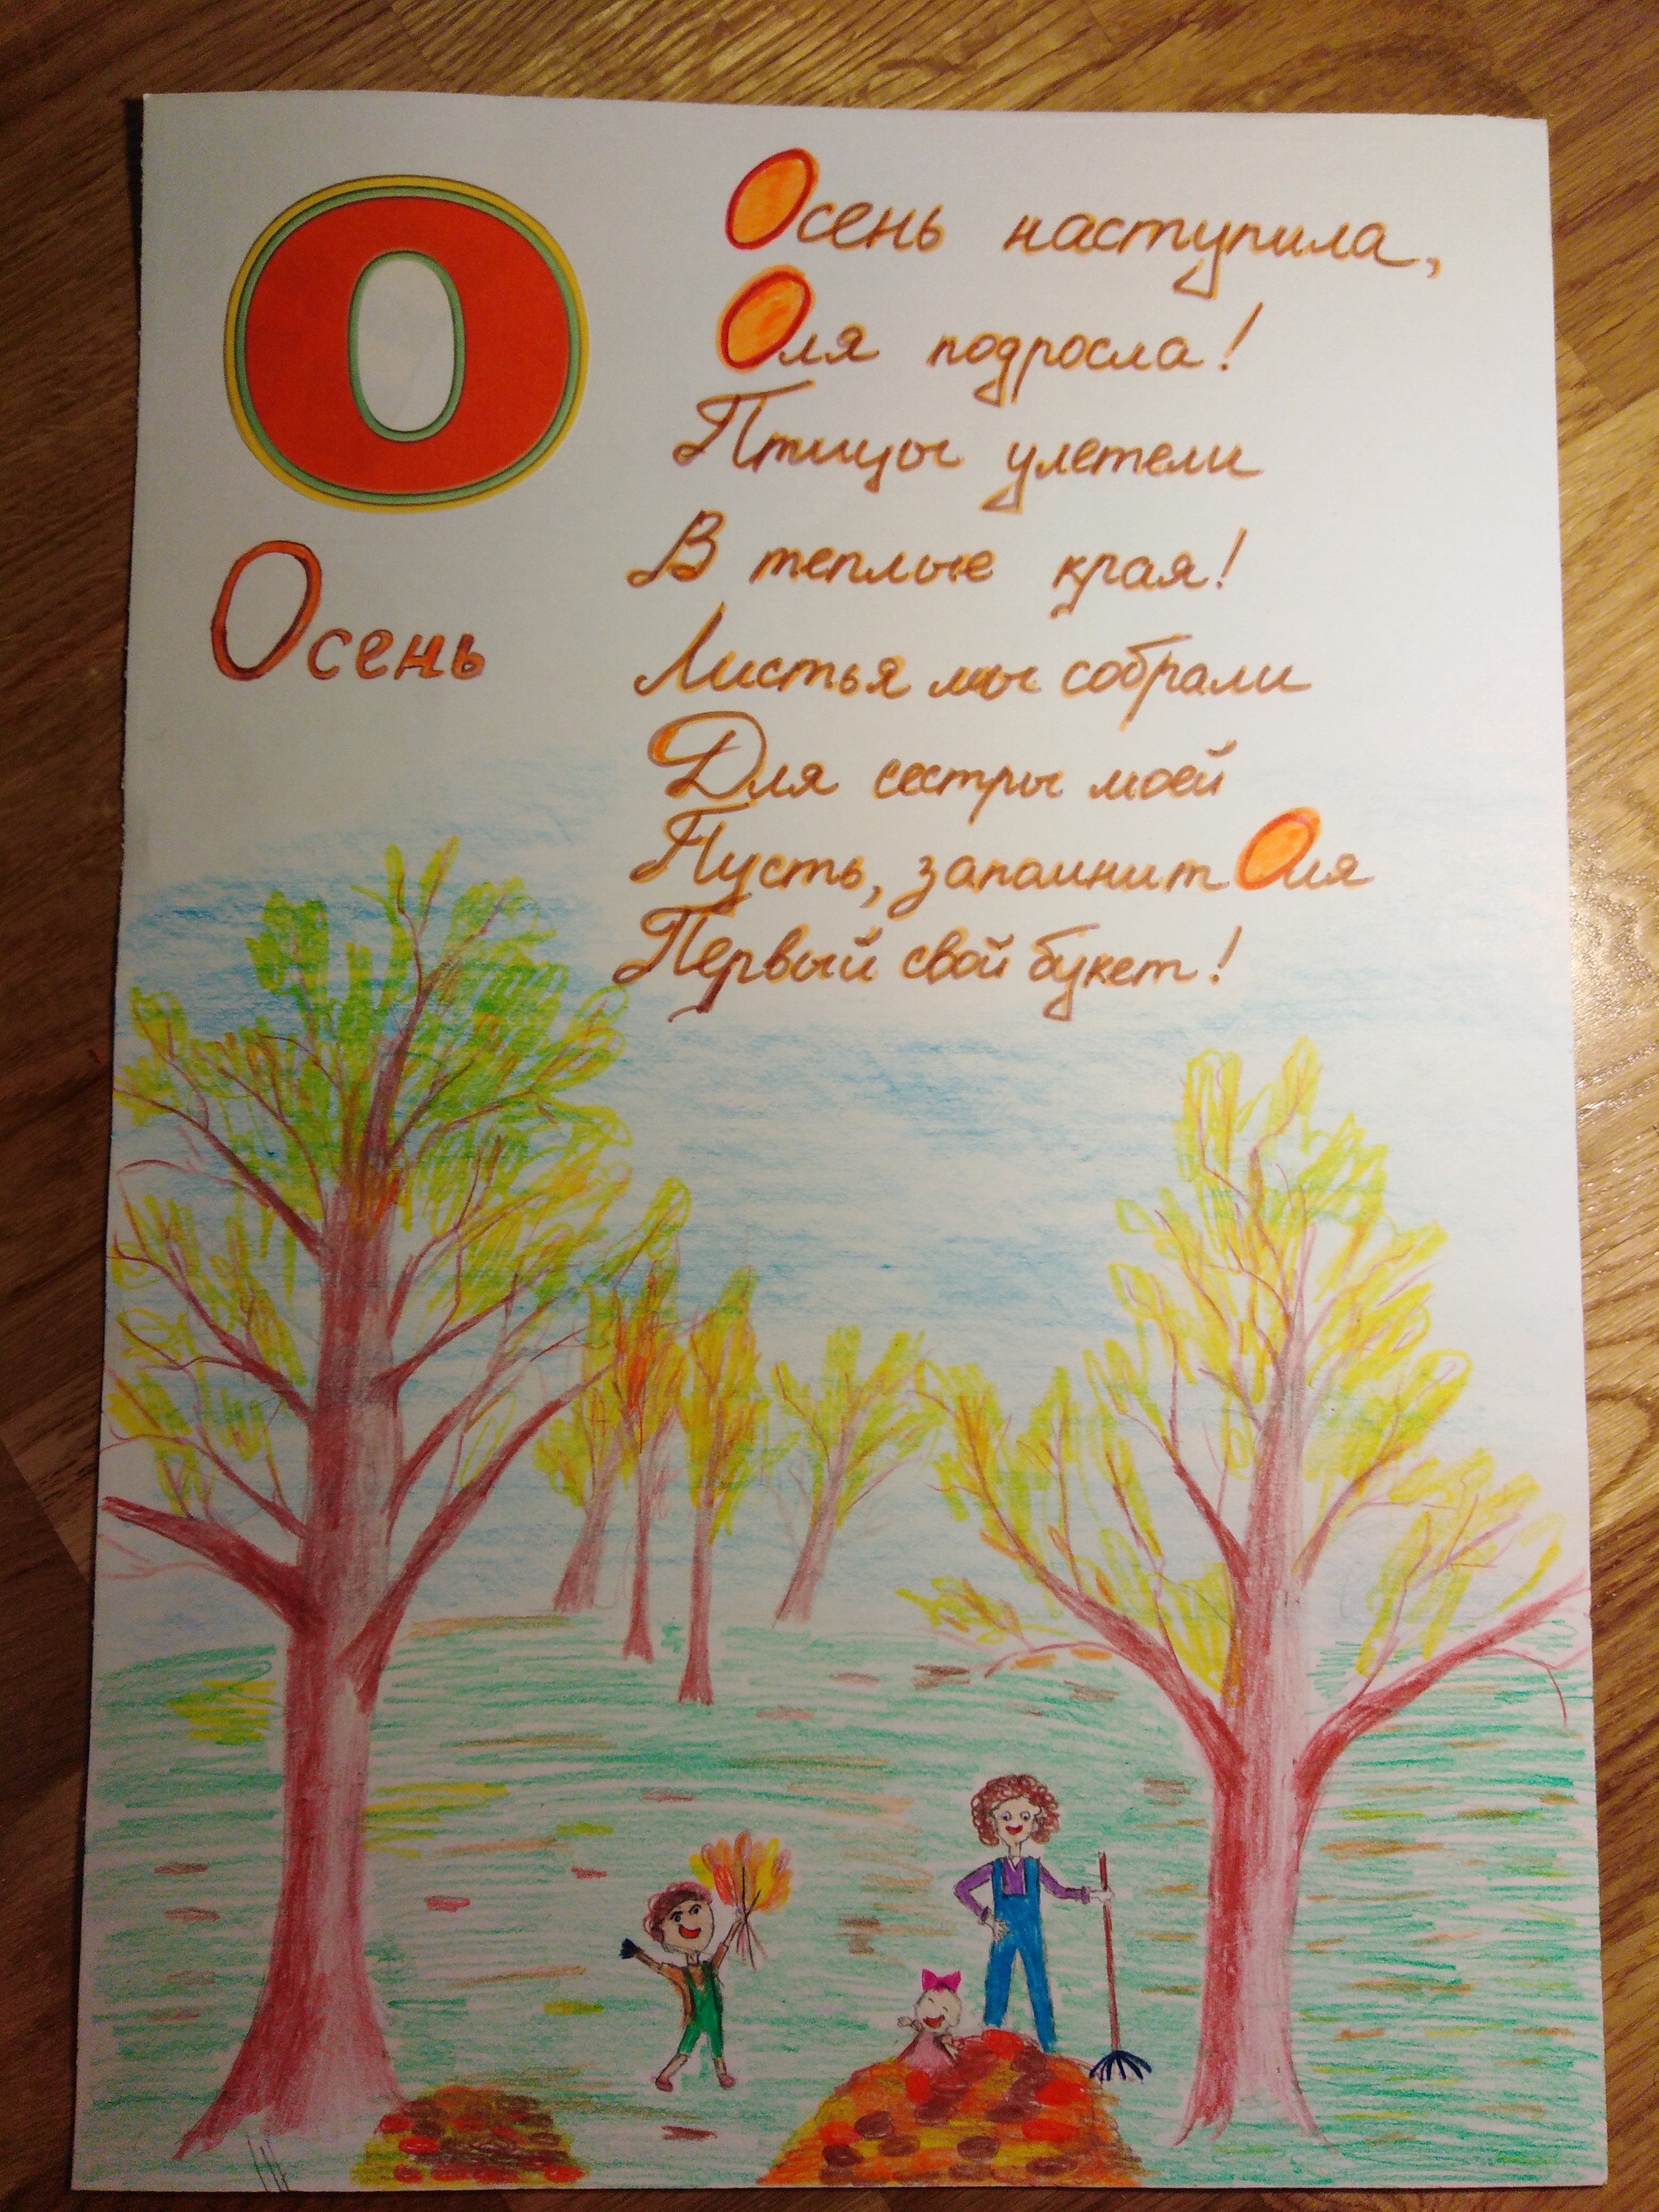 О
Осень
Осень наступила,
Оля подросла!
Птицы улетели
В теплые края!
Листья мы собрали
Для сестры моей
Пусть, запомнит Оля
Первый свой букет!